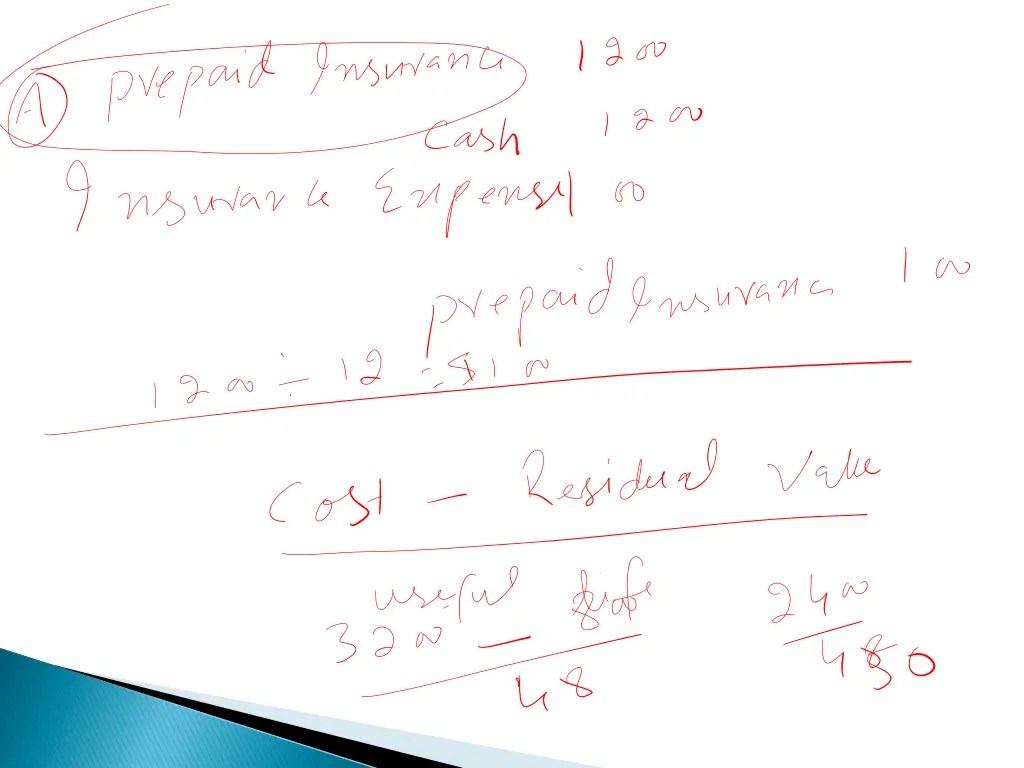 A Prepaid Insurance 1200
Cash 1200
Insurance Expense 100
prepaid Insurance 100
1200 ÷ 12 = $100
Cost — Residual Value
useful life
3200 — 800 2400
48 48 50